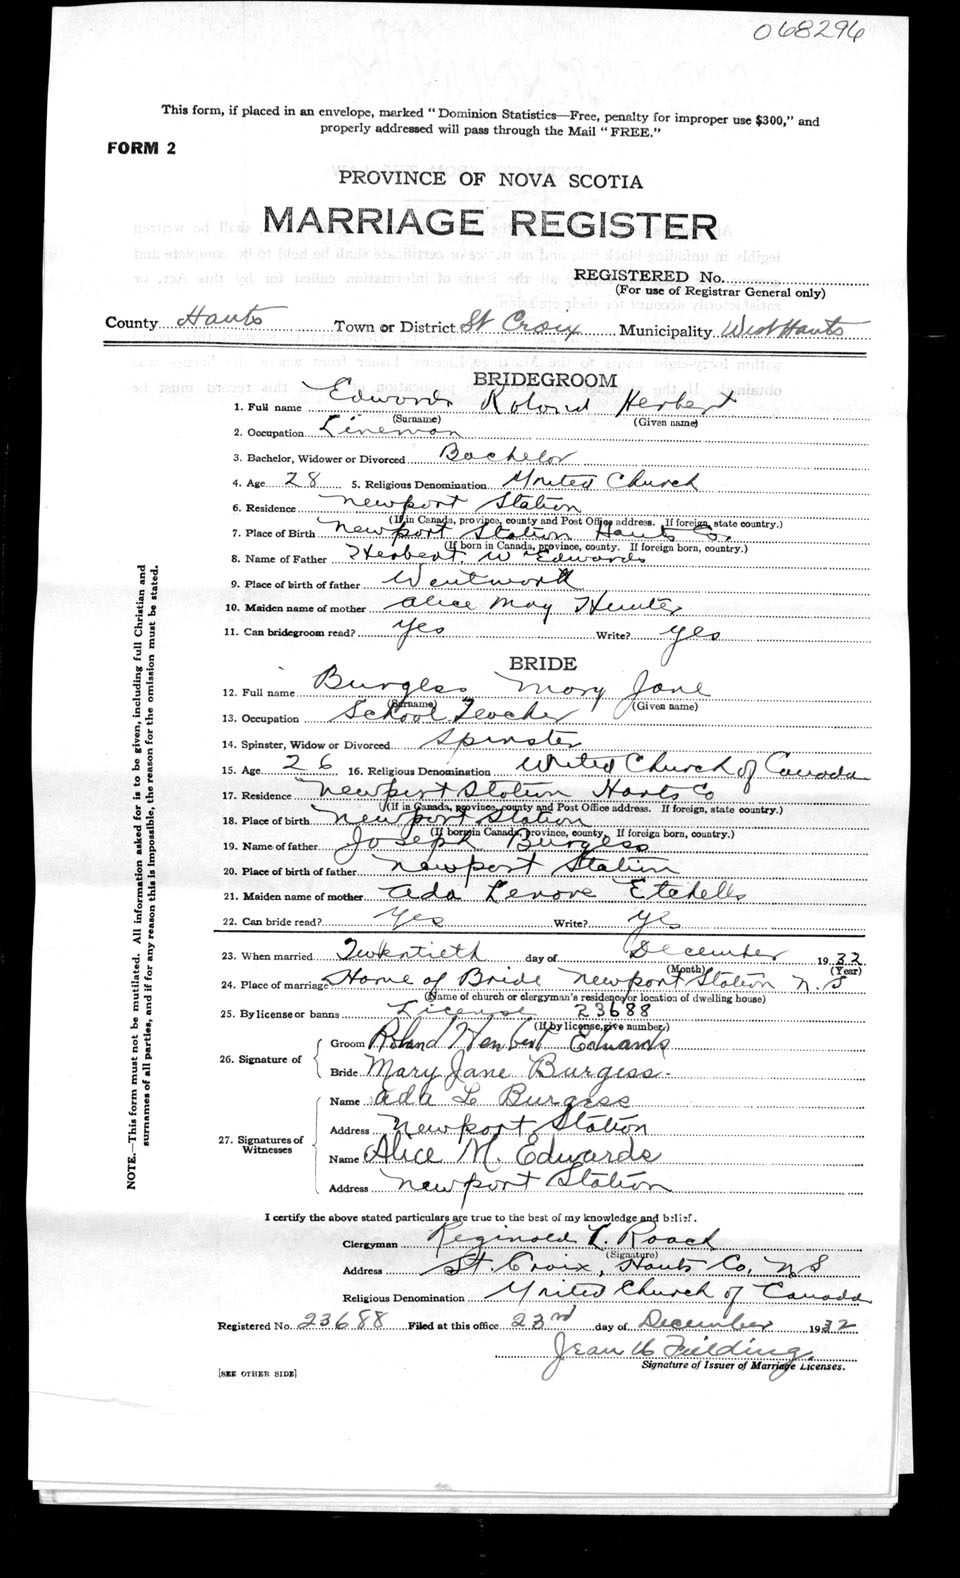 068296
This form, if placed in an envelope, marked "Dominion Statistics—Free, penalty for improper use $300," and
properly addressed will pass through the Mail "FREE."
FORM 2
PROVINCE OF NOVA SCOTIA
MARRIAGE REGISTER
REGISTERED No.
(For use of Registrar General only)
County Hants Town or District St Croix Municipality West Hants
BRIDEGROOM
1. Full name Edwards Roland Herbert
(Surname) (Given name)
2. Occupation Lineman
3. Bachelor, Widower or Divorced Bachelor
4. Age 28 5. Religious Denomination United Church
6. Residence Newport Station
(If in Canada, province, county and Post Office address. If foreign, state country.)
7. Place of Birth Newport Station Hants Co.
(If born in Canada, province, county. If foreign born, country.)
8. Name of Father Herbert W Edwards
9. Place of birth of father Wentworth
10. Maiden name of mother Alice May Hunter
11. Can bridegroom read? Yes Write? Yes
BRIDE
12. Full name Burgess Mary Jane
(Surname) (Given name)
13. Occupation School Teacher
14. Spinster, Widow or Divorced Spinster
15. Age 26 16. Religious Denomination United Church of Canada
17. Residence Newport Station Hants Co
(If in Canada, province, county and Post Office address. If foreign, state country.)
18. Place of birth Newport Station
(If born in Canada, province, county. If foreign born, country.)
19. Name of father Joseph Burgess
20. Place of birth of father Newport Station
21. Maiden name of mother Ada Lenore Etchells
22. Can bride read? Yes Write? Yes
23. When married Twentieth day of December 1932
(Month) (Year)
24. Place of marriage Home of Bride Newport Station N.S
(Name of church or clergyman's residence or location of dwelling house)
25. By license or banns License 23688
(If by license, give number.)
26. Signature of
Groom Roland Herbert Edwards
Bride Mary Jane Burgess.
27. Signatures of Witnesses
Name Ada L Burgess
Address Newport Station
Name Alice M. Edwards
Address Newport Station
I certify the above stated particulars are true to the best of my knowledge and belief.
Clergyman Reginald L. Roach
(Signature)
Address St. Croix, Hants Co, N S
Religious Denomination United Church of Canada
Registered No. 23688 Filed at this office 23rd day of December 1932
Jean Fielding
Signature of Issuer of Marriage Licenses.
[SEE OTHER SIDE]
NOTE.—This form must not be mutilated. All information asked for is to be given, including full Christian and
surnames of all parties, and if for any reason this is impossible, the reason for the omission must be stated.